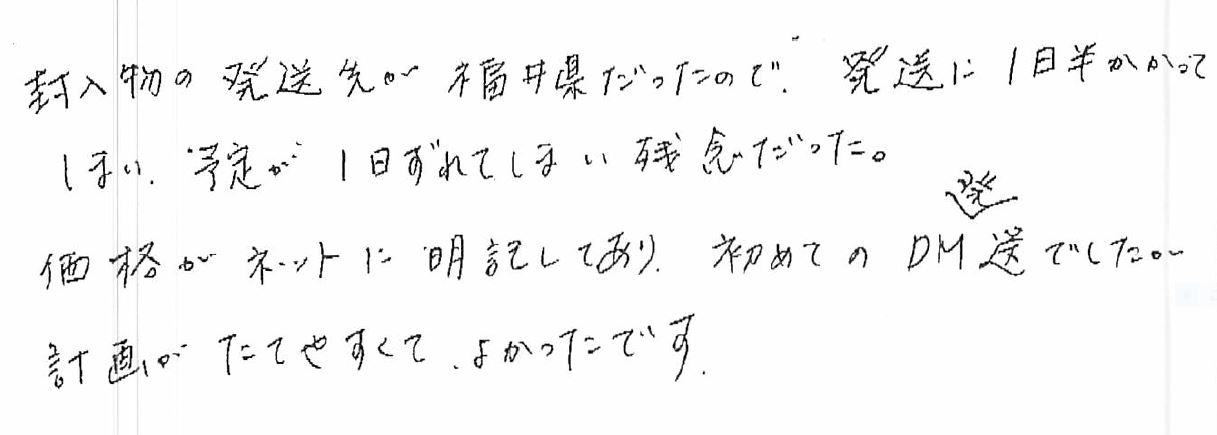 封入物の発送先が福井県だったので、発送に1日半かかって
しまい、予定が1日ずれてしまい残念だった。
価格がネットに明記してあり、初めてのDM発送でしたが
計画がたてやすくて、よかったです。